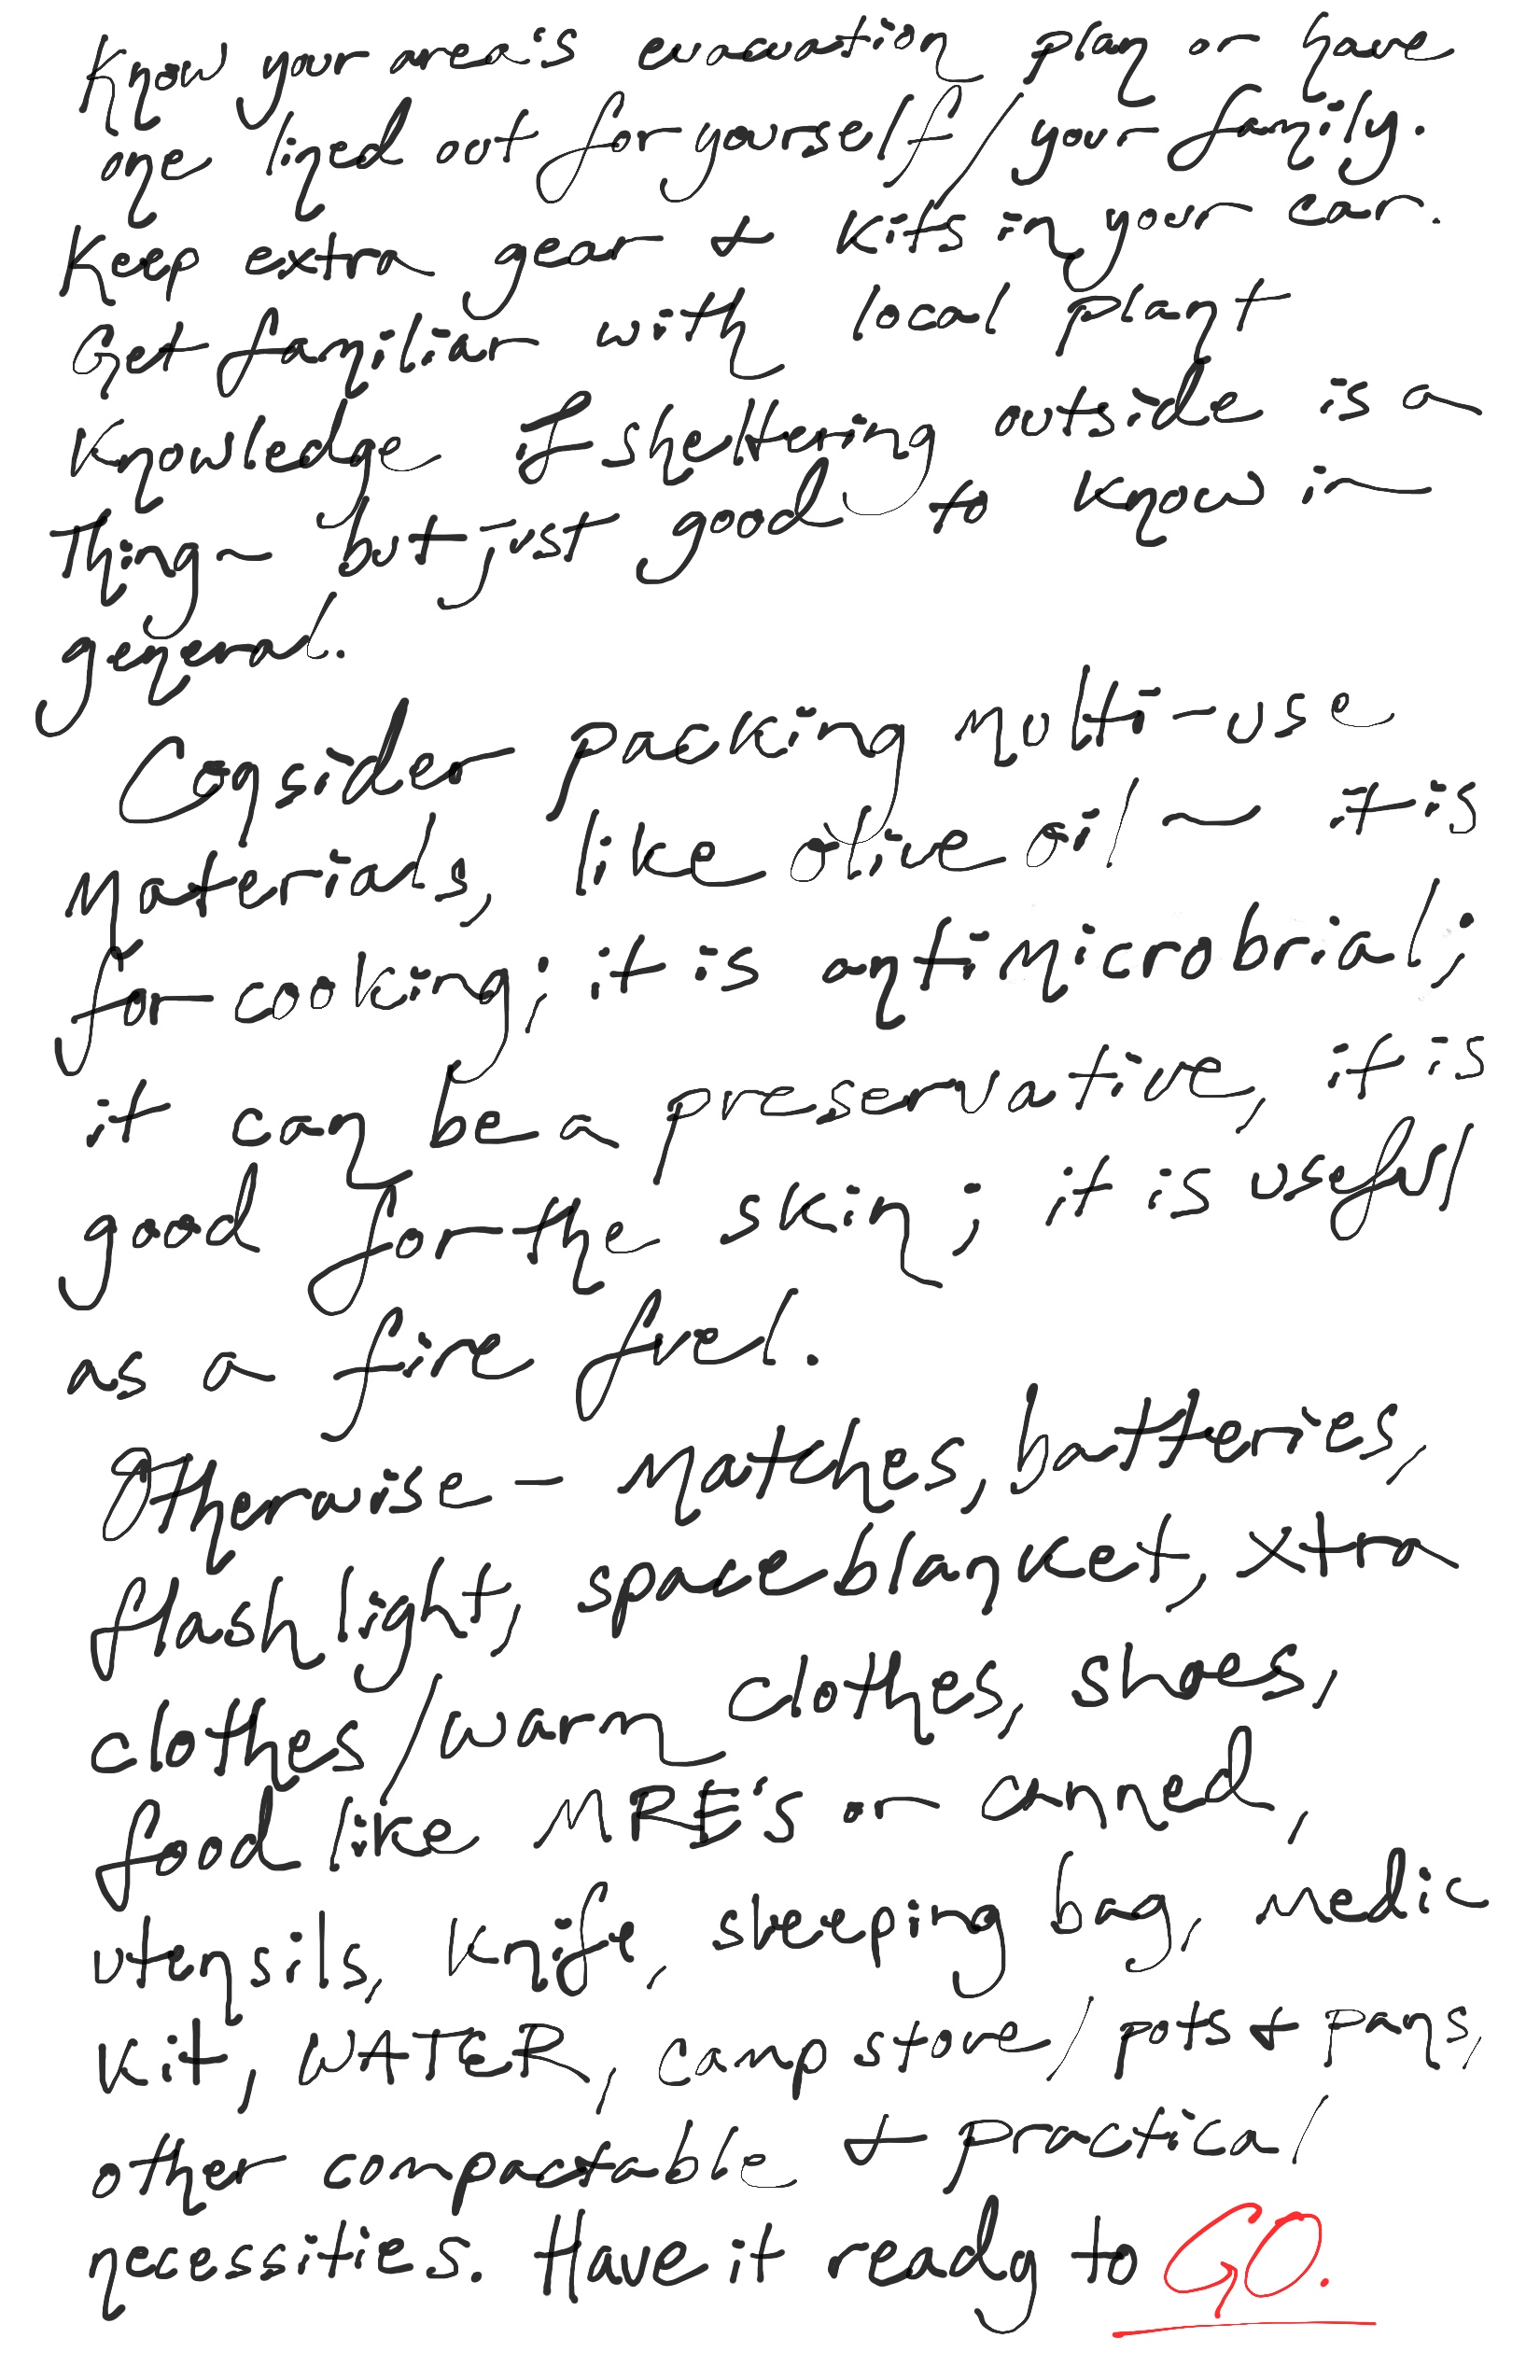 Know your area's evacuation plan or have
one lined out for yourself/your family.
Keep extra gear & kits in your car.
Get familiar with local plant
knowledge if sheltering outside is a
thing - but just good to know in
general.
Consider packing multi-use
materials, like olive oil - it is
for cooking; it is antimicrobrial;
it can be a preservative, it is
good for the skin; it is useful
as a fire fuel.
Otherwise - matches, batteries,
flash light, space blanket, xtra
clothes/warm clothes, shoes,
food like MRE's or canned,
utensils, knife, sleeping bag, medic
kit, WATER, camp stove/pots & pans,
other compactable & practical
necessities. Have it ready to GO.